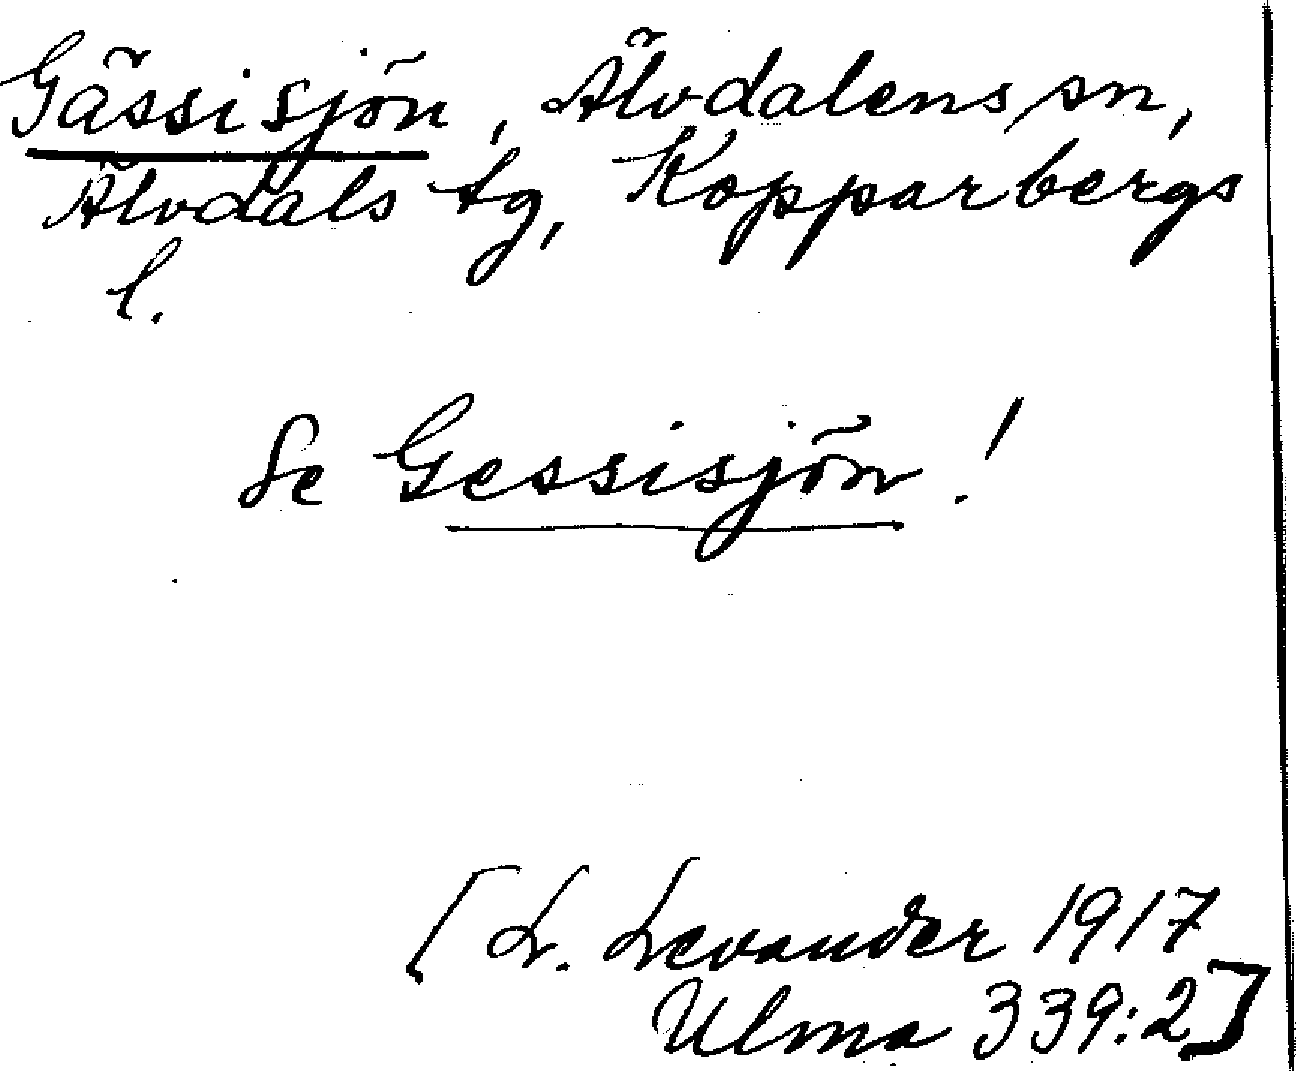 Gässisjön, Älvdalens sn,
Älvdals tg, Kopparbergs
l.
Se Gessisjön!
[L. Levander 1917
Ulma 339:2]